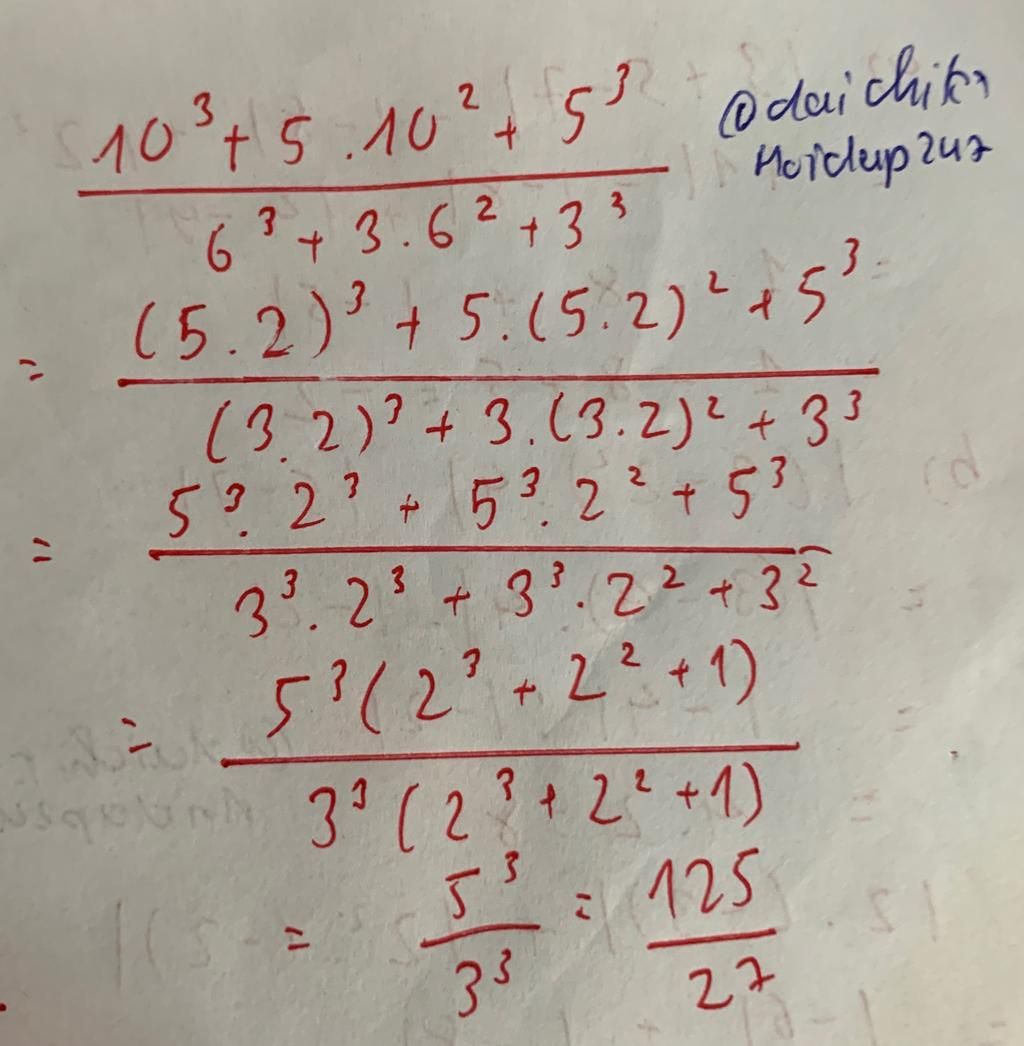 10³ + 5 . 10² + 5³
6³ + 3 . 6² + 3³
@daichiks
Hoidap247
= (5 . 2)³ + 5 . (5 . 2)² + 5³
(3 . 2)³ + 3 . (3 . 2)² + 3³
= 5³ . 2³ + 5³ . 2² + 5³
3³ . 2³ + 3³ . 2² + 3²
= 5³ (2³ + 2² + 1)
3³ (2³ + 2² + 1)
= 5³ = 125
3³ 27